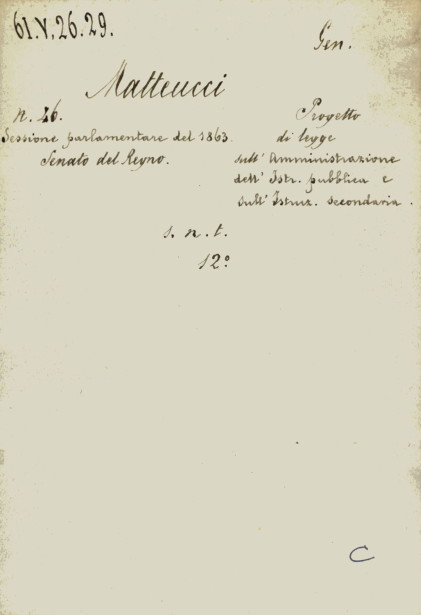 61.V.26.29.
Gen.
Matteucci
n. 26.
Sessione parlamentare del 1863.
Senato del Regno.
Progetto
di legge
sull' Amministrazione
dell' Istr. pubblica e
sull' Istruz. secondaria.
s. n. t.
12º
C